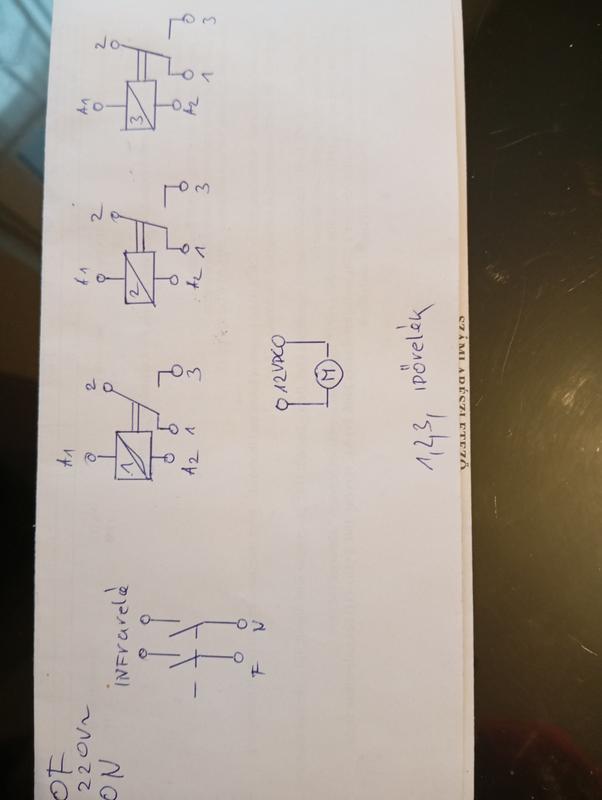 OF
220V~
ON
INFrarelé
F
N
A1
2
1
1
3
A2
A1
2
2
1
3
A2
A1
2
3
1
3
A2
12VDC
M
1,2,3, IDŐrelék